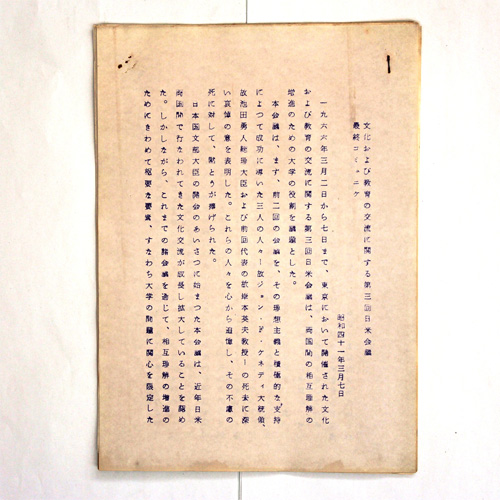 文化および教育の交流に関する第三回日米会議
最終コミュニケ
昭和四十一年三月七日
一九六六年三月二日から七日まで、東京において開催された文化
および教育の交流に関する第三回日米会議は、両国間の相互理解の
増進のための大学の役割を議題とした。
本会議は、まず、前二回の会議を、その理想主義と積極的な支持
によつて成功に導いた三人の人々―故ジョン・F・ケネディ大統領、
故池田勇人総理大臣および前回代表の故岸本英夫教授―の死去に深
い哀悼の意を表明した。これらの人々を心から追憶し、その不慮の
死に対して、黙とうが捧げられた。
日本国文部大臣の開会のあいさつに始まつた本会議は、近年日米
両国間で行なわれてきた文化交流が成長し拡大していることを認め
た。しかしながら、これまでの諸会議を通じて、相互理解の増進の
ためにきわめて枢要な要素、すなわち大学の問題に関心を限定した